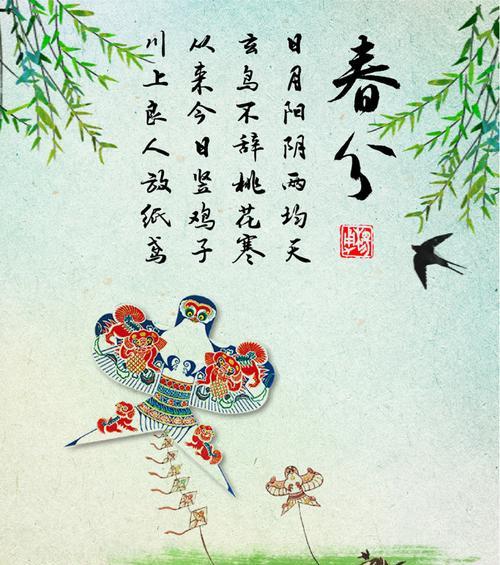 春分
日月阳阴两均天
玄鸟不辞桃花寒
从来今日竖鸡子
川上良人放纸鸢